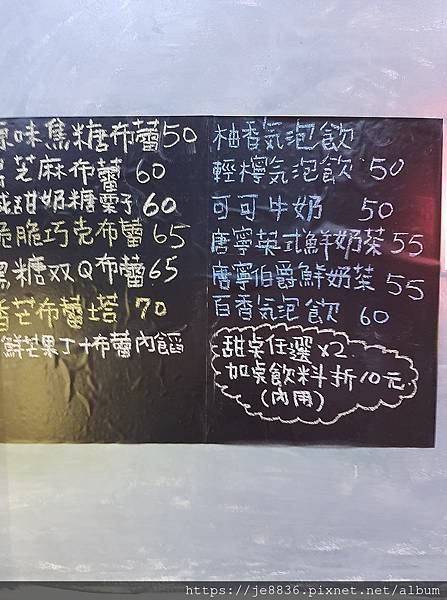 味焦糖布蕾50
芝麻布蕾 60
甜奶糖栗子60
脆巧克布蕾 65
糖双Q布蕾65
香芒布蕾塔 70
鮮芒果丁+布蕾內餡
柚香氣泡飲
輕檸氣泡飲 50
可可牛奶 50
唐寧英式鮮奶茶 55
唐寧伯爵鮮奶茶 55
百香氣泡飲 60
甜桌任選x2
加桌飲料折10元
(內用)
https://je8836.pixnet.net/album